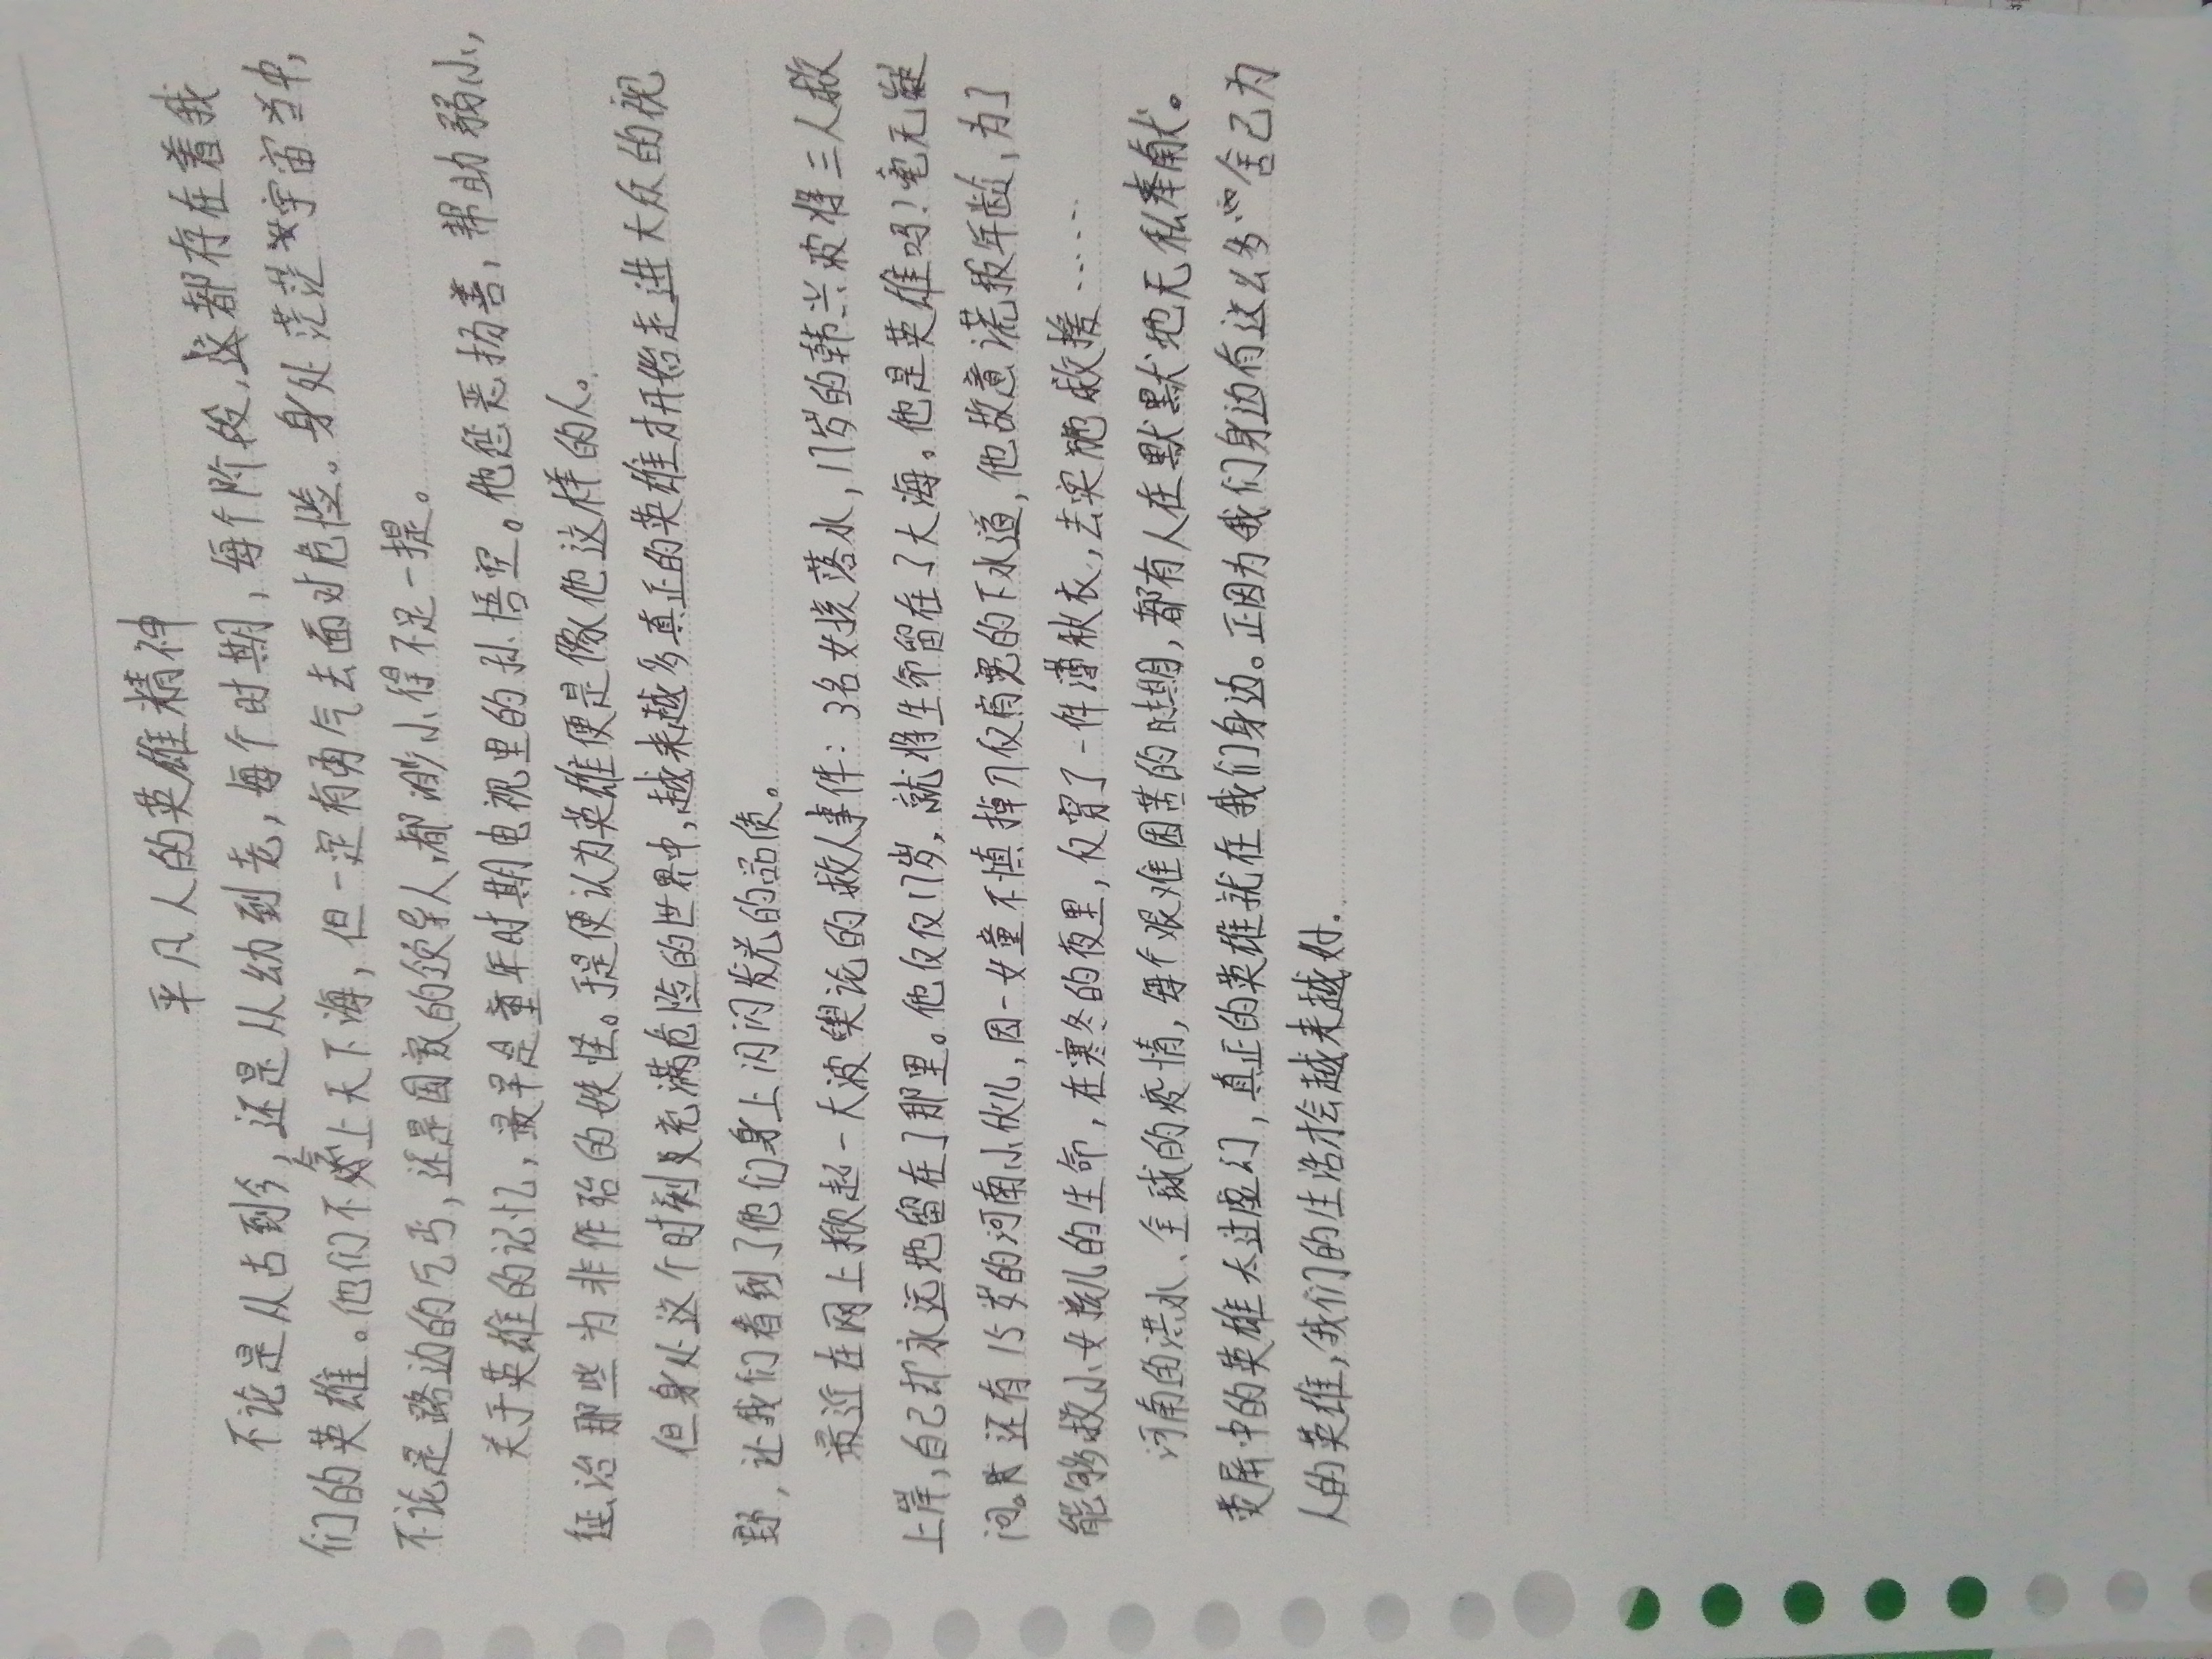 平凡人的英雄精神
不论是从古到今,还是从幼到老,每个时期,每个阶段,这都存在着我
们的英雄。他们不会上天下海,但一定有勇气去面对危险。身处茫茫宇宙当中,
不论是路边的乞丐,还是国家的领导人,都渺小得不足一提。
关于英雄的记忆,最早是童年时期电视里的孙悟空。他惩恶扬善,帮助弱小,
征治那些为非作殆的妖怪。于是便认为英雄便是像他这样的人。
但身处这个时刻充满危险的世界中,越来越多真正的英雄才开始走进大众的视
野,让我们看到了他们身上闪闪发光的品质。
最近在网上掀起一大波舆论的救人事件:3名女孩落水,17岁的韩兴波将三人救
上岸,自己却永远地留在了那里。他仅仅17岁,就将生命留在了大海。他是英雄吗?毫无疑
问。还有15岁的河南小伙儿,因一女童不慎掉入仅有宽的下水道,他故意谎报年龄,为了
能够救小女孩儿的生命,在寒冬的夜里,仅穿了一件薄秋衣,去实施救援……
河南的洪水、全球的疫情,每个艰难困苦的时期,都有人在默默地无私奉献。
荧屏中的英雄太过虚幻,真正的英雄就在我们身边。正因为我们身边有这么多“舍己为
人的英雄,我们的生活才会越来越好.